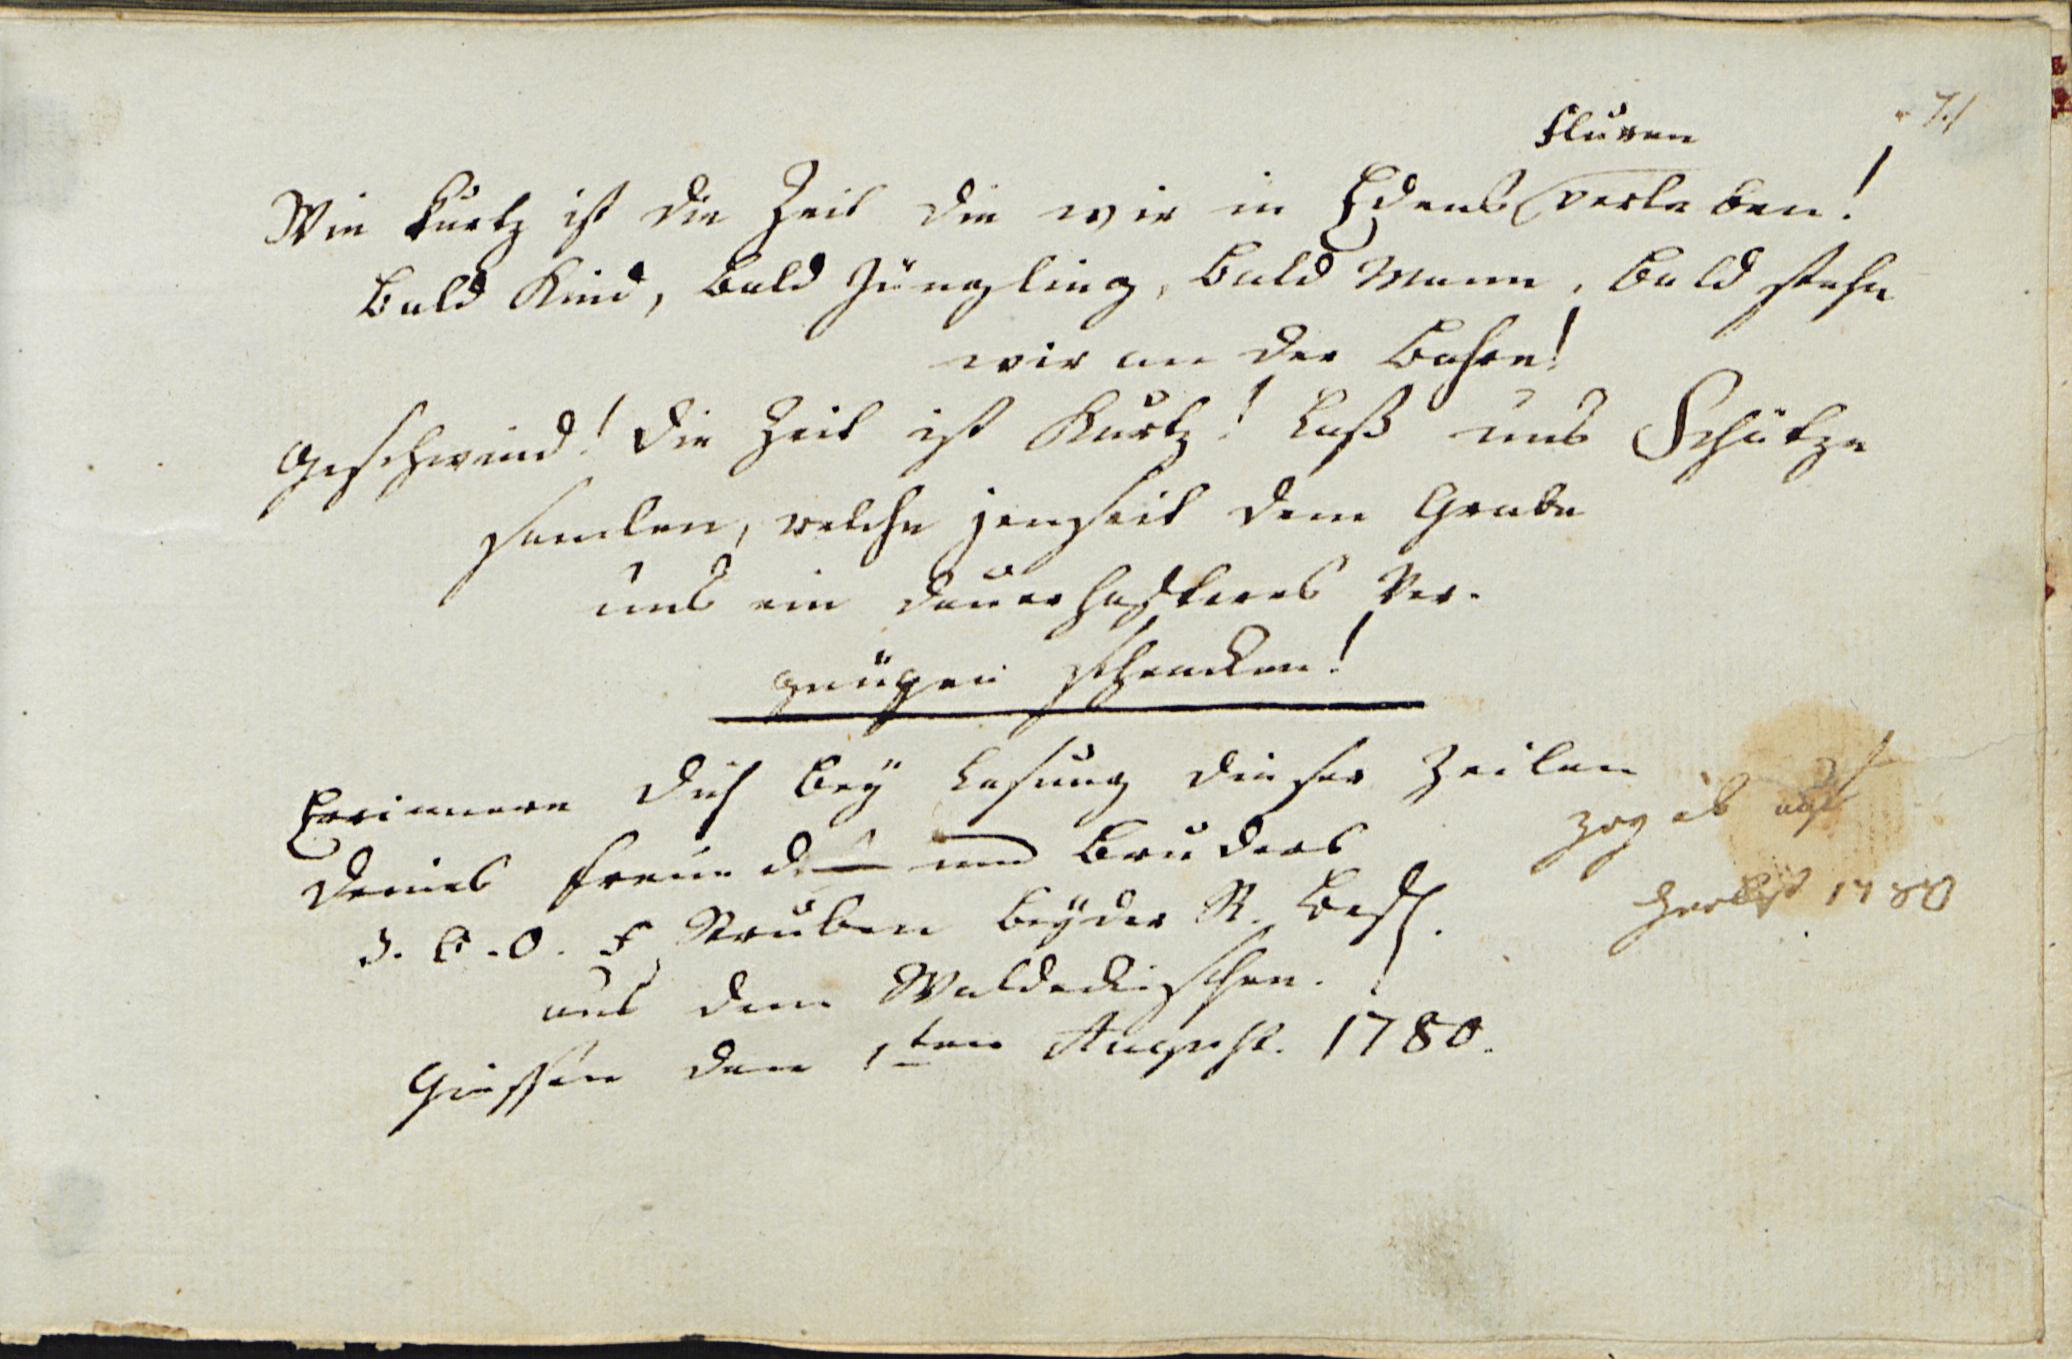 71
Fluren
Wie kurtz ist die Zeit die wir in Edens verleben!
Bald Kind, bald Jüngling, bald Mann, bald stehn
wir an der Bahre!
Geschwind! die Zeit ist kurtz! Laß uns Schätze
samlen, welche jenseit dem Grabe
uns ein dauerhafteres Ver-
gnügen schencken!
Erinnere dich bey Lesung dieser Zeilen
deines Freundes und Bruders
J. C. O. F. Struben beyder R. Befl.
aus dem Waldeckischen.
Giessen den 1ten August. 1780.
zog ab auf
Herbst 1780